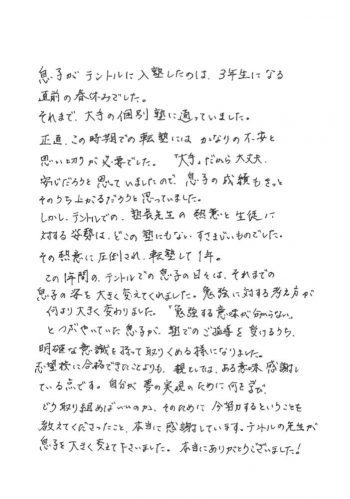 息子がテントルに入塾したのは、3年生になる
直前の春休みでした。
それまで、大手の個別塾に通っていました。
正直、この時期での転塾にはかなりの不安と
思い切りが必要でした。「大手」だから大丈夫、
安心だろうと思っていましたので、息子の成績もきっと
そのうち上がるだろうと思っていました。
しかし、テントルでの、塾長先生の熱意と生徒に
対する姿勢は、どこの塾にもないすさまじいものでした。
その熱意に圧倒され、転塾して1年。
この1年間の、テントルでの息子の日々は、それまでの
息子の姿を大きく変えてくれました。勉強に対する考え方が
何より大きく変わりました。「勉強する意味が分からない」
とつぶやいていた息子が、塾でのご指導を受けるうち、
明確な意識を持って取りくめる様になりました。
志望校に合格できたことよりも、親としては、ある意味感謝し
ている点です。自分が夢の実現のために何を学び、
どう取り組めばいいのか、そのために今努力するということを
教えてくださったこと、本当に感謝しています。テントルの先生が
息子を大きく変えて下さいました。本当にありがとうございました!